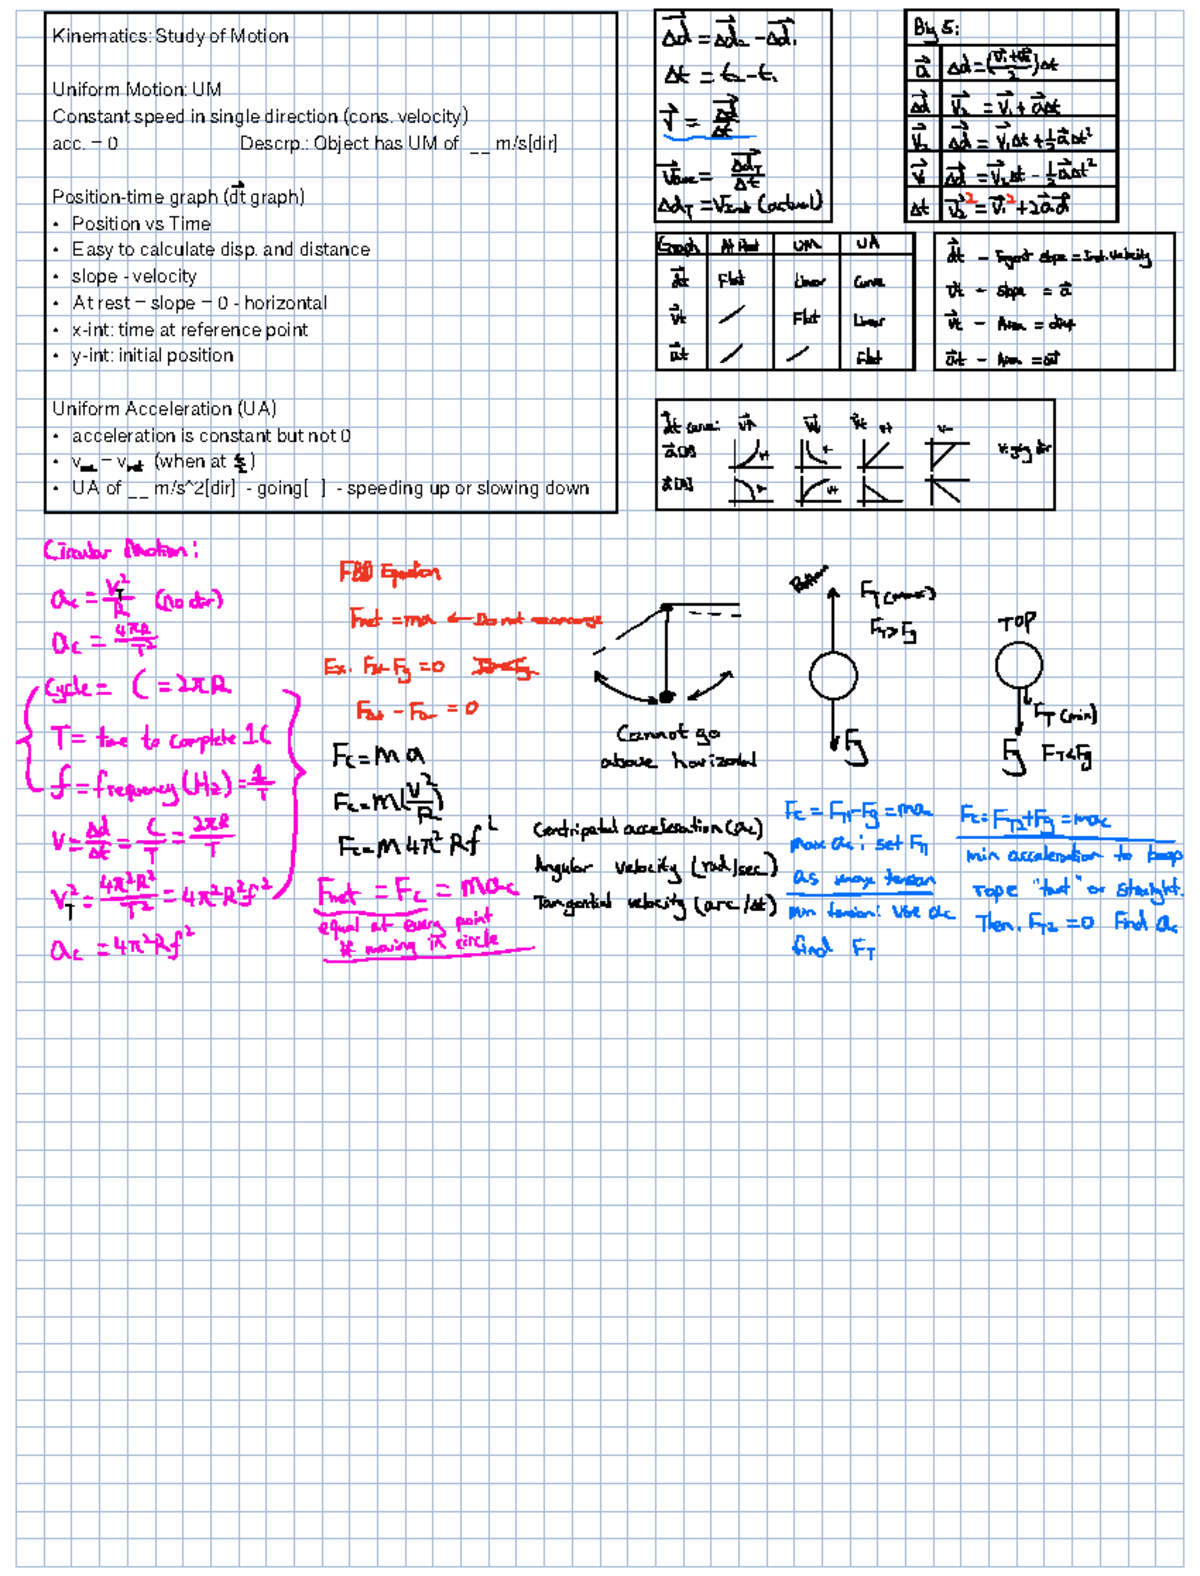 Kinematics: Study of Motion
Uniform Motion: UM
Constant speed in single direction (cons. velocity)
acc. = 0 Descrp.: Object has UM of __ m/s[dir]
Position-time graph (dt graph)
• Position vs Time
• Easy to calculate disp. and distance
• slope - velocity
• At rest = slope = 0 - horizontal
• x-int: time at reference point
• y-int: initial position
Uniform Acceleration (UA)
• acceleration is constant but not 0
(when at
• UA of __ m/s^2[dir] - going[ ] - speeding up or slowing down
Δd = Δd₂ - Δd₁
Δt = t₂ - t₁
v = Δd/Δt
Vave = ΔdT/Δt
ΔdT = (actual)
Big 5:
a Δd = (v₁+v₂/2)Δt
Δd v₂ = v₁ + aΔt
v₂ Δd = v₁Δt + ½aΔt²
v₁ Δd = v₂Δt - ½aΔt²
Δt v₂² = v₁² + 2ad
Graph At Rest UM UA
dt Flat Linear Curve
vt / Flat Linear
at / / Flat
dt - Tangent slope = Inst. Velocity
vt - slope = a
vt - Area =
at - Area =
dt curve:
Circular Motion:
ac = vT²/R (no dir)
ac = 4π²R/T²
Cycle = C = 2πR
T = time to complete 1C
f = frequency (Hz) = 1/T
V = Δd/Δt = C/T = 2πR/T
vT² = 4π²R²/T² = 4π²R²f²
ac = 4π²Rf²
FBD Equation
Fnet = ma ← Do not rearrange
Ex. - Fg = 0
= 0
Fc = ma
Fc = m(v²/R)
Fc = m4π²Rf²
Fnet = Fc = mac
equal at every point
if moving in circle
Cannot go
above horizontal
Centripetal acceleration (ac)
Angular velocity (rad/sec)
Tangential velocity (arc/Δt)
Bottom
FT(max)
FT>Fg
Fg
TOP
FT(min)
Fg FT<Fg
Fc = FT1-Fg = mac
max ac: set FT1
as max tension
min tension: use ac
find FT
Fc = FT2+Fg = mac
min acceleration to keep
rope "taut" or straight.
Then, FT2 = 0 Find ac